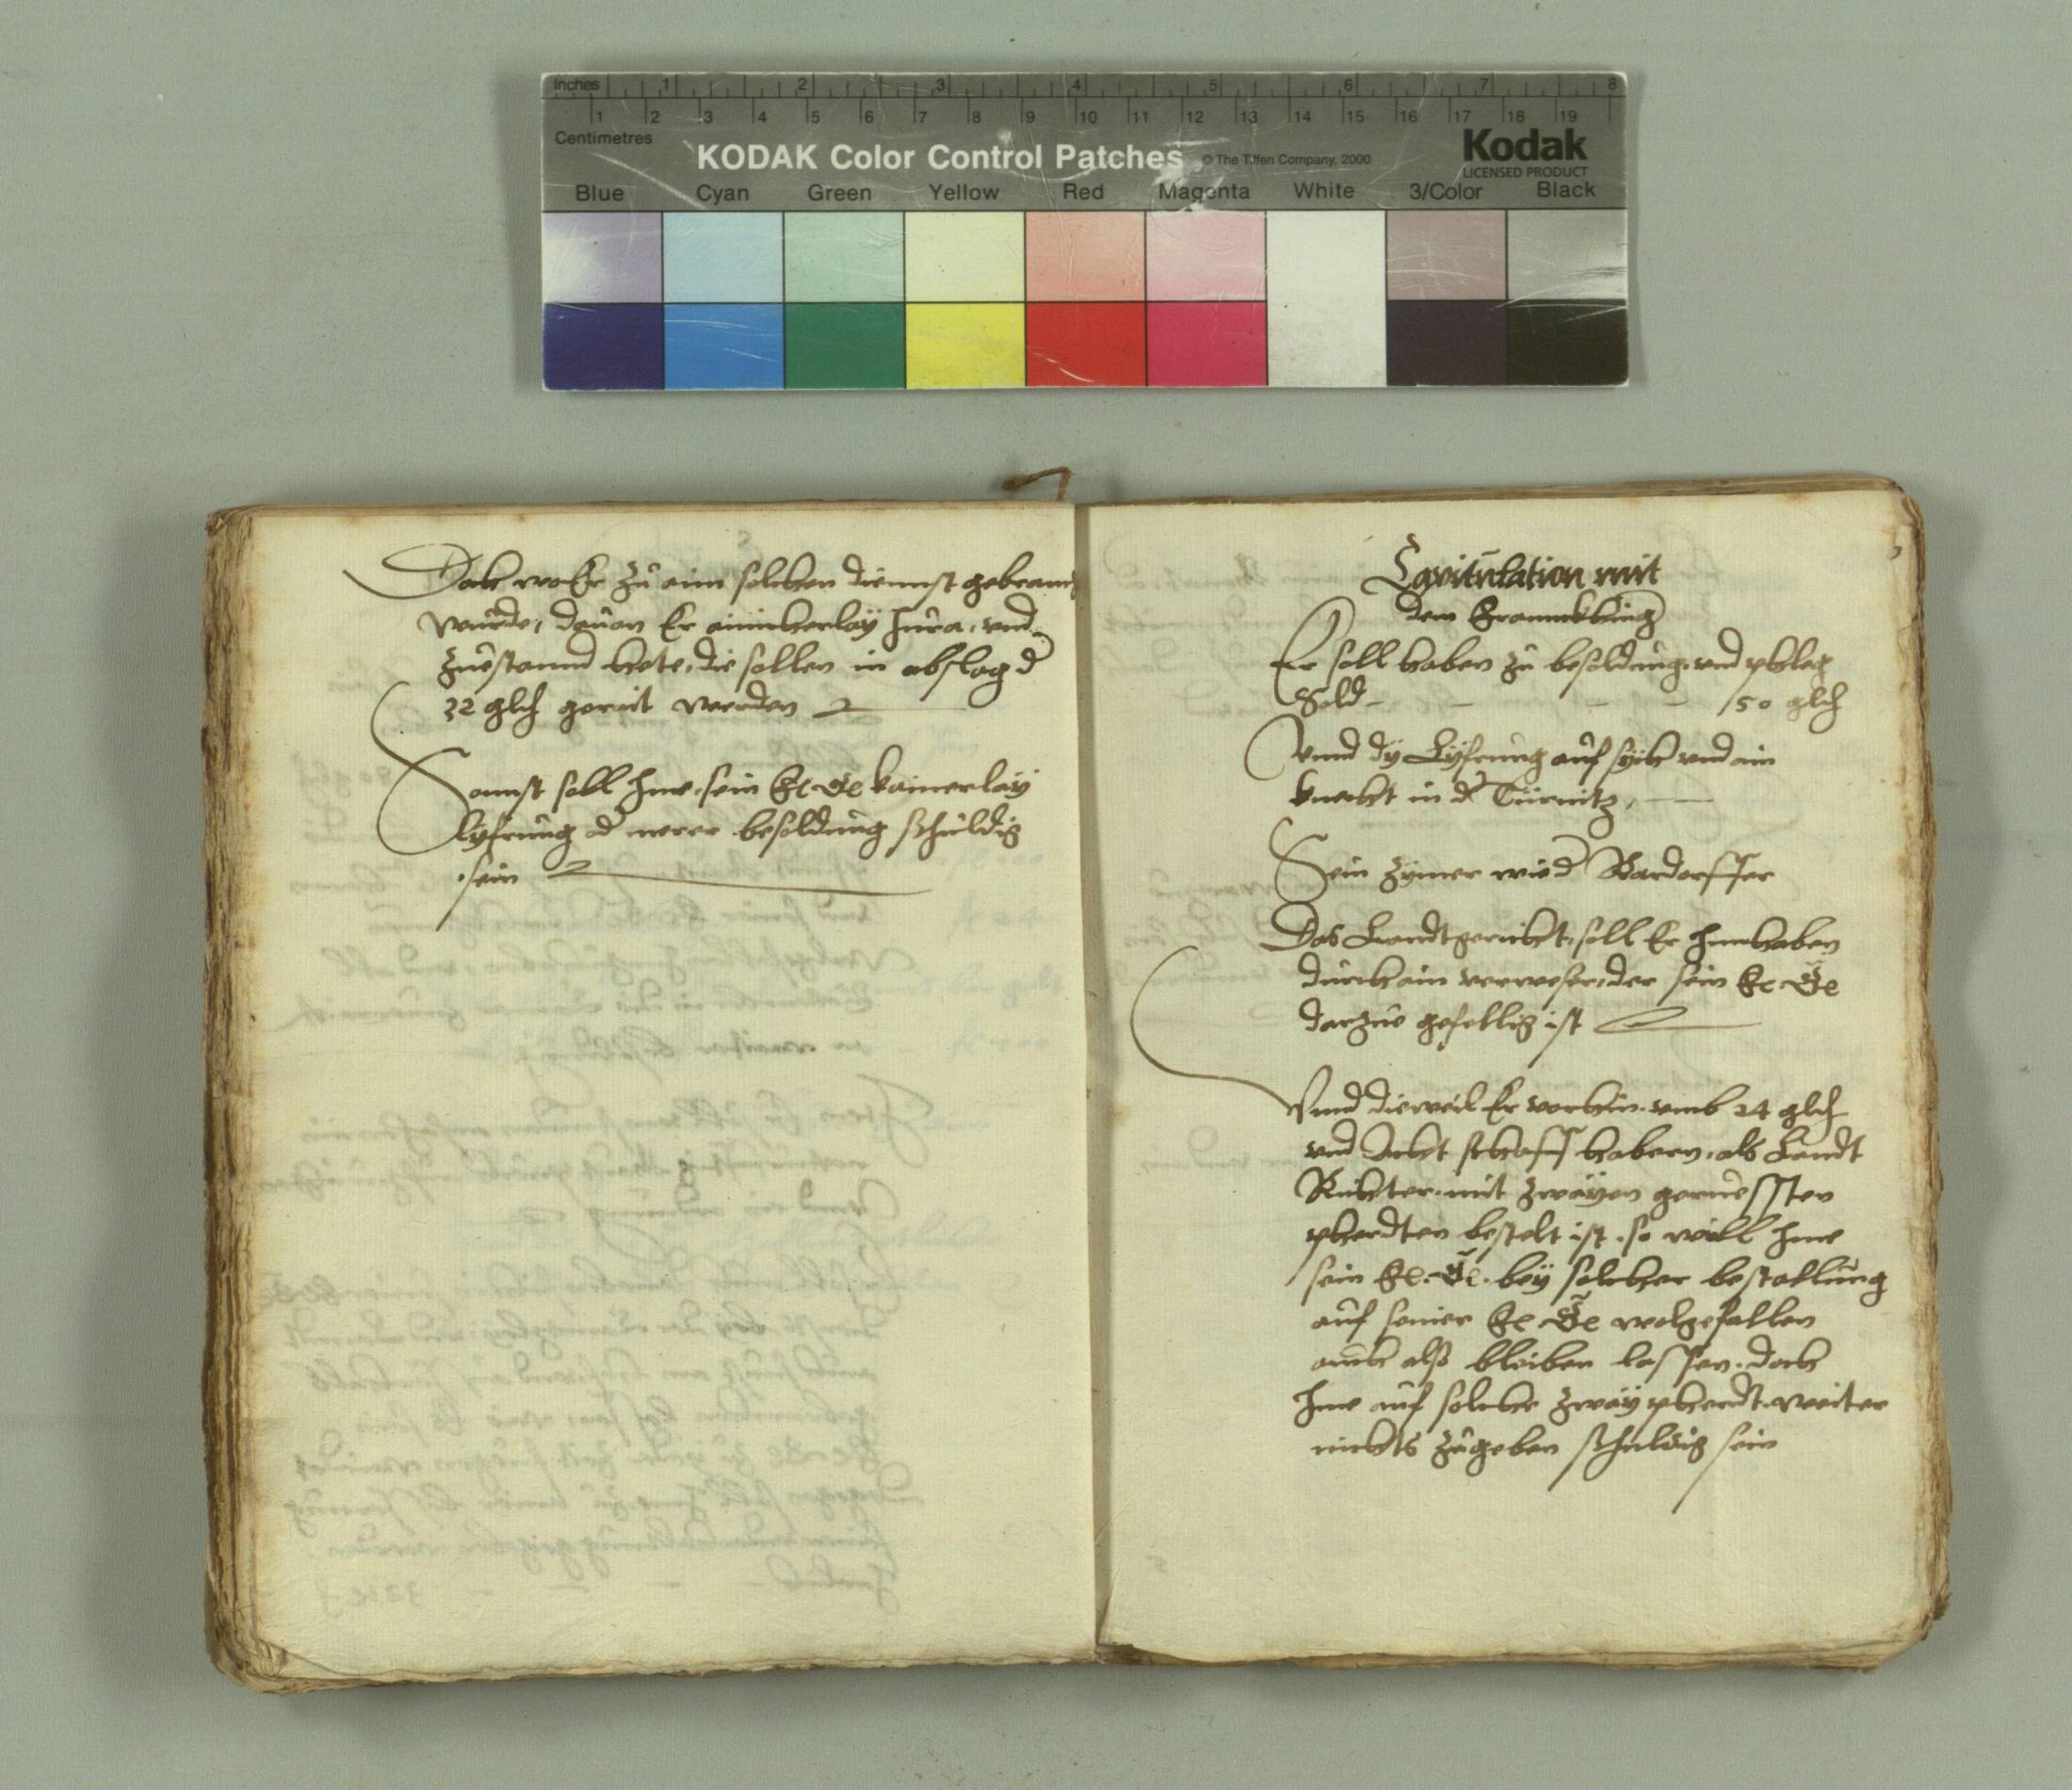 Inches 1 2 3 4 5 6 7 8
1 2 3 4 5 6 7 8 9 10 11 12 13 14 15 16 17 18 19
Centimetres
KODAK Color Control Patches © The Tiffen Company, 2000 Kodak
LICENSED PRODUCT
Blue Cyan Green Yellow Red Magenta White 3/Color Black
Doch wo Er zu aim solchen diennst gebraucht
wurde, dauon Er ainicherlay Jura, vnd
zuestannd hete, die sollen in abslag d
32 gld gerait werden
Sonnst soll Jme sein kainerlay
lyfrung od merer besoldung schuldig
sein
Capitulation mit
dem
Er soll haben zu besoldung vnd pfleg
Sold 50 gld
Vnnd dy Lyfrung auf sych vnd ain
knecht in d Türnitz,
Sein zymer wie d
Das Lanndtgericht, soll Er Jnnhaben
durch ain verweser, der sein
darzue gefellig ist
Vnnd dieweil Er vorhin vmb 24 gld
vnd Acht schaff habern, als Landt
Richter mit zwayen geruessten
pherdten bestelt ist, so will Jme
sein bey solcher bestallung
auf seiner wolgefallen
auch also bleiben lassen, doch
Jme auf solche zway pherdt weiter
nichts zugeben schuldig sein